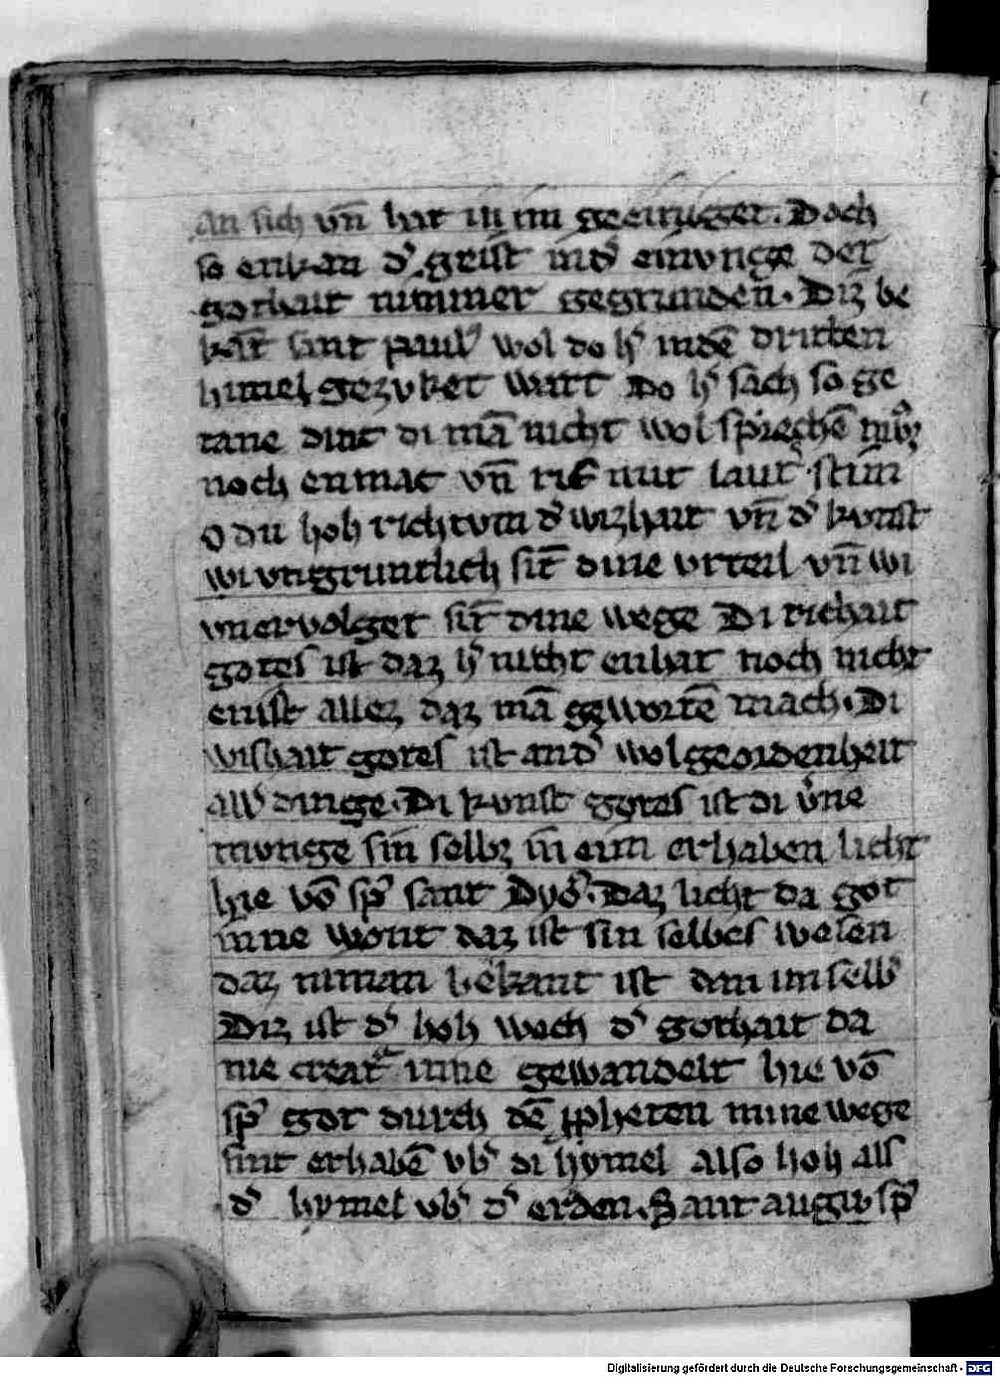 an sich vn̄ hat in im geeiniget. Doch
so enkan d᾽ geist in d᾽ einvnge der
gothait nimmer gegrunden. Diz be
kāt sant paul᾽ wol do h᾽ in dē dritten
himel gezvket wart Do h᾽ sach so ge
tane dinc di mā nicht wol sprechē
noch enmac vn̄ rif mit laut᾽ stim
O du hoh richtvm d᾽ wizhait vn̄ d᾽ kvnst
wi vngruntlich sīt dine vrteil vn̄ wi
vnervolget sīt dine wege Di richait
gotes ist daz h᾽ nicht enhat noch nicht
enist allez daz mā gewortē mach. Di
wishait gotes ist an d᾽ wolgeordenheit
all᾽ dinge. Di kvnst gotes ist di v᾽ne
mvnge sin selbz in eim erhaben licht
hie vō sp᾽ sant Dyo᾽. Daz licht da got
inne wont daz ist sin selbes wesen
daz niman bekant ist dan im selb᾽
Diz ist d᾽ hoh woch d᾽ gothait da
nie creat᾽ inne gewandelt hie vō
sp᾽ got durch dē ꝓpheten mine wege
sint erhabē vb᾽ di hymel also hoh als
d᾽ hymel vb᾽ d᾽ erden. Sant augu᾽ sp᾽
Digitalisierung gefördert durch die Deutsche Forschungsgemeinschaft - DFG